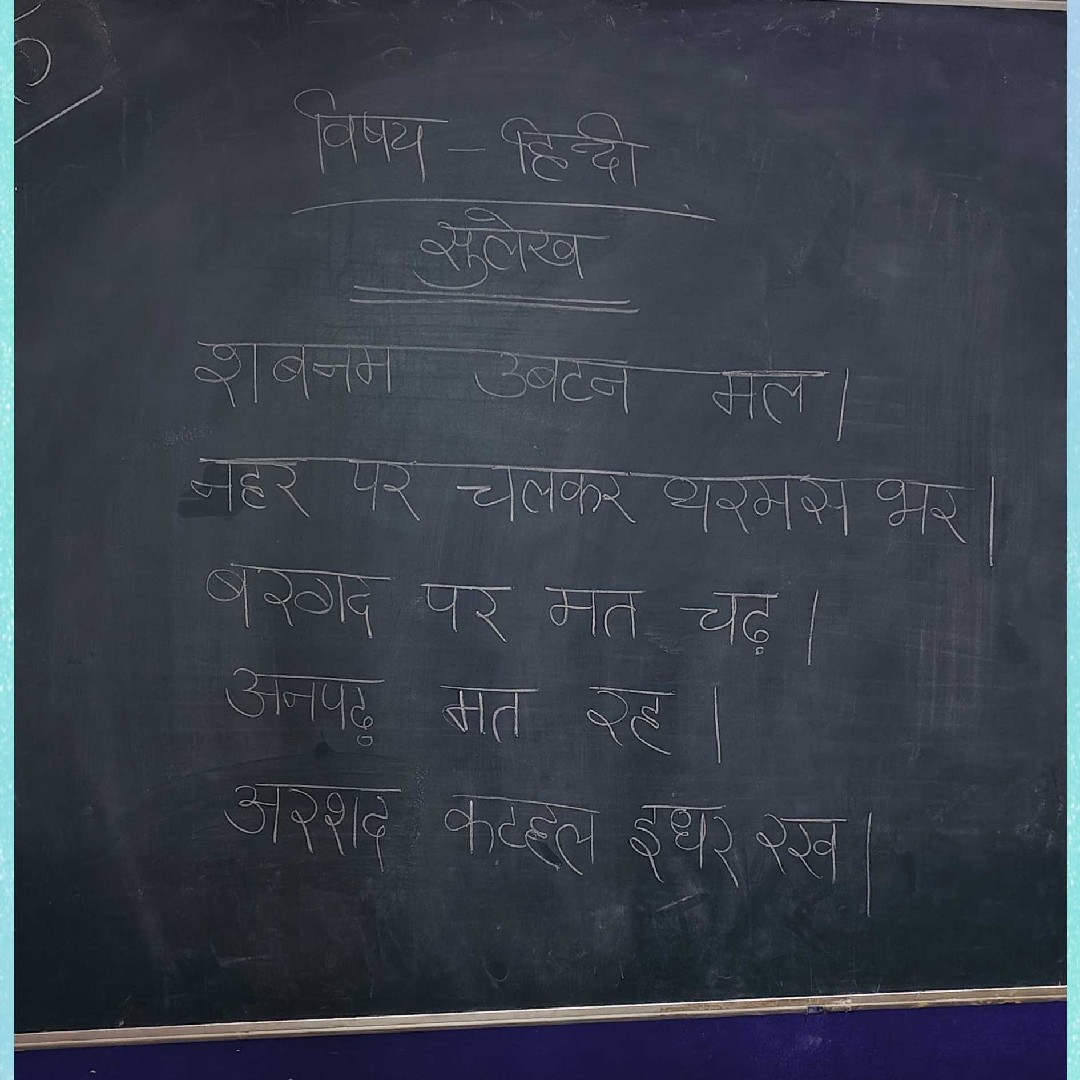 विषय - हिन्दी
सुलेख
शबनम उबटन मल।
नहर पर चलकर थरमस भर।
बरगद पर मत चढ़।
अनपढ़ मत रह।
अरशद कटहल इधर रख।